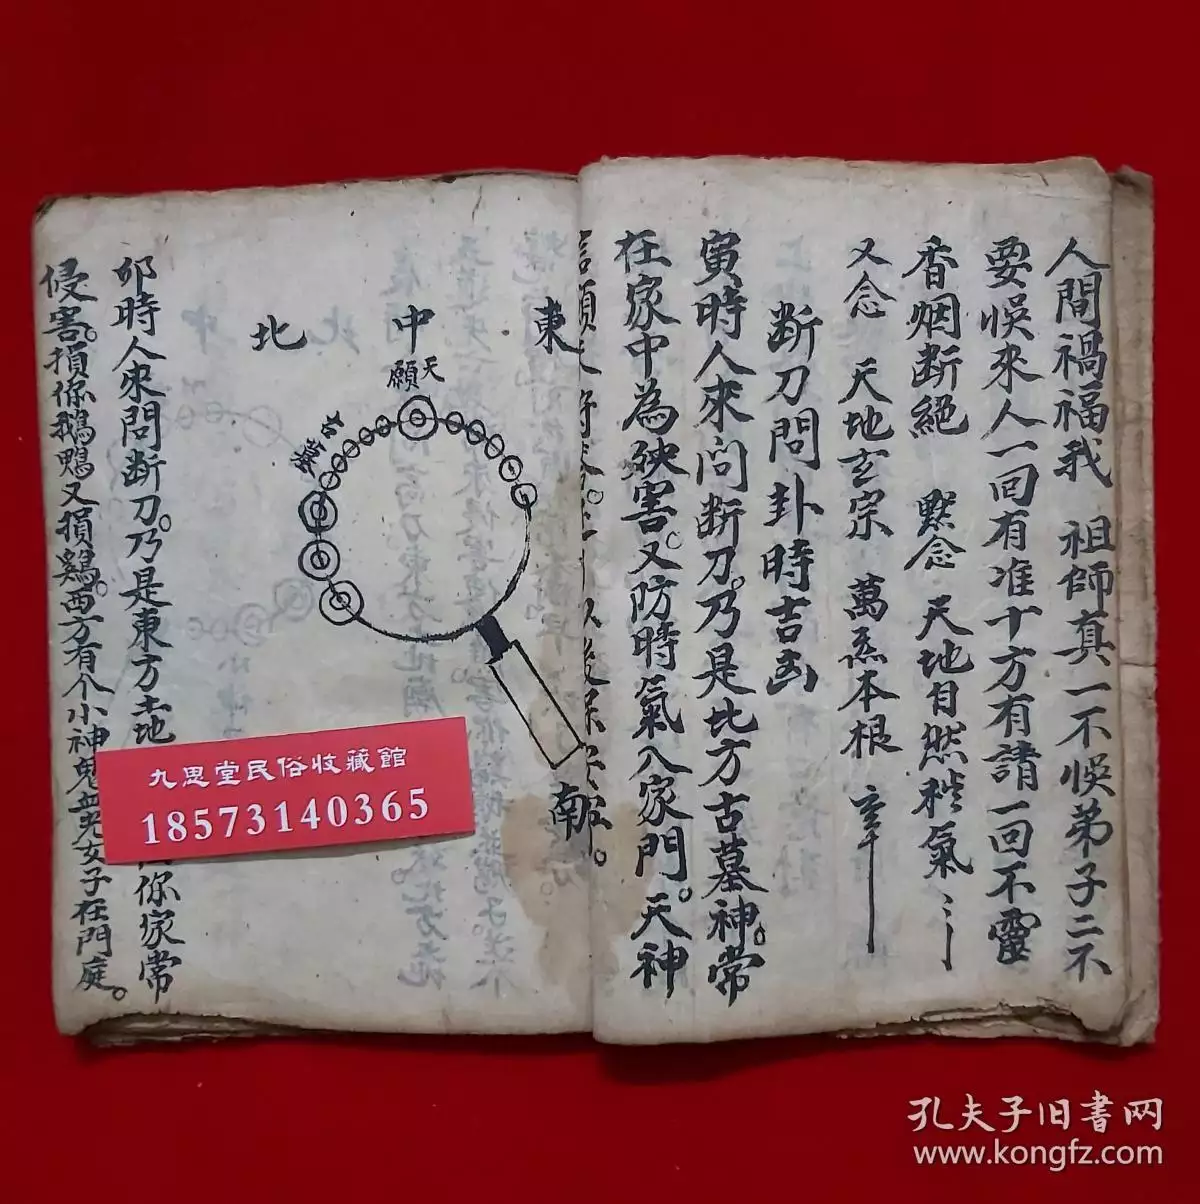 人間禍福我　祖師真一不悮弟子二不
要悮來人一回有准十方有請一回不靈
香烟断絕　黙念　天地自然
氣
又念　天地玄宗　萬炁本根
断刀問卦時吉凶
寅時人來问断刀。乃是北方古墓神。常
在家中為殃害。又防時氣入家門。天神
東
中
北
天
願
古墓
南
卯時人來問断刀。乃是東方土地
你家常
侵害。損你鵝鴨又損鷄。西方有个小神鬼
女子在門庭。
九思堂民俗收藏館
18573140365
孔夫子旧書网
www.kongfz.com